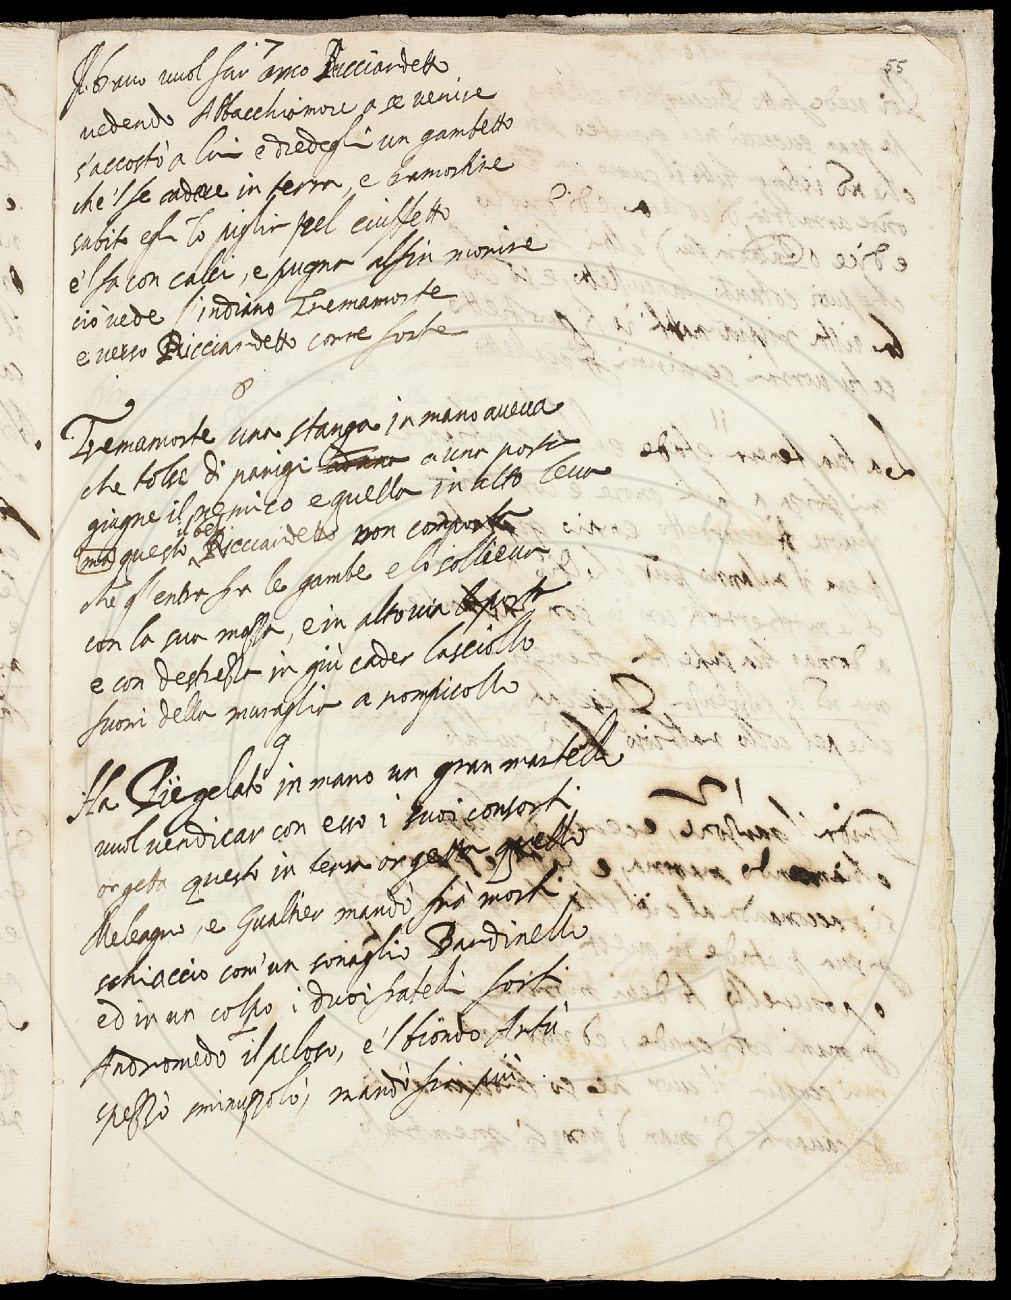 55
7
Il bravo vuol far arco Ricciardetto
vedendo Abbacchiamore a se venire
s'accostò a lui e diedegli un gambetto
che 'l fe cadere in terra, e tramortire
subito egli lo piglia pel ciuffetto
e 'l fa con calci, e pugna assin morire
ciò vede l'indiano Tremamorte
e verso Ricciardetto corre forte
8
Tremamorte una stanga in mano aveva
che tolse di parigi a una porta
giugne il nemico e quella in alto leva
ma questo il bel Ricciardetto non comporta
che gl'entra fra le gambe e lo solleva
con la sua mazza, e in alto via
e con destrezza in giù cader lasciollo
fuori della muraglia a rompicollo
9
Ha Piegelato in mano un gran martello
vuol vendicar con esso i suoi consorti
or getta questo in terra or getta quello
Meleagro, e Gualtier mandò fra' morti
schiacciò com' un sonaglio Bardinello
ed in un colpo i duoi fratelli forti
Andromedo il peloso, e 'l biondo Artù
spezzò sminuzzolò, mandò